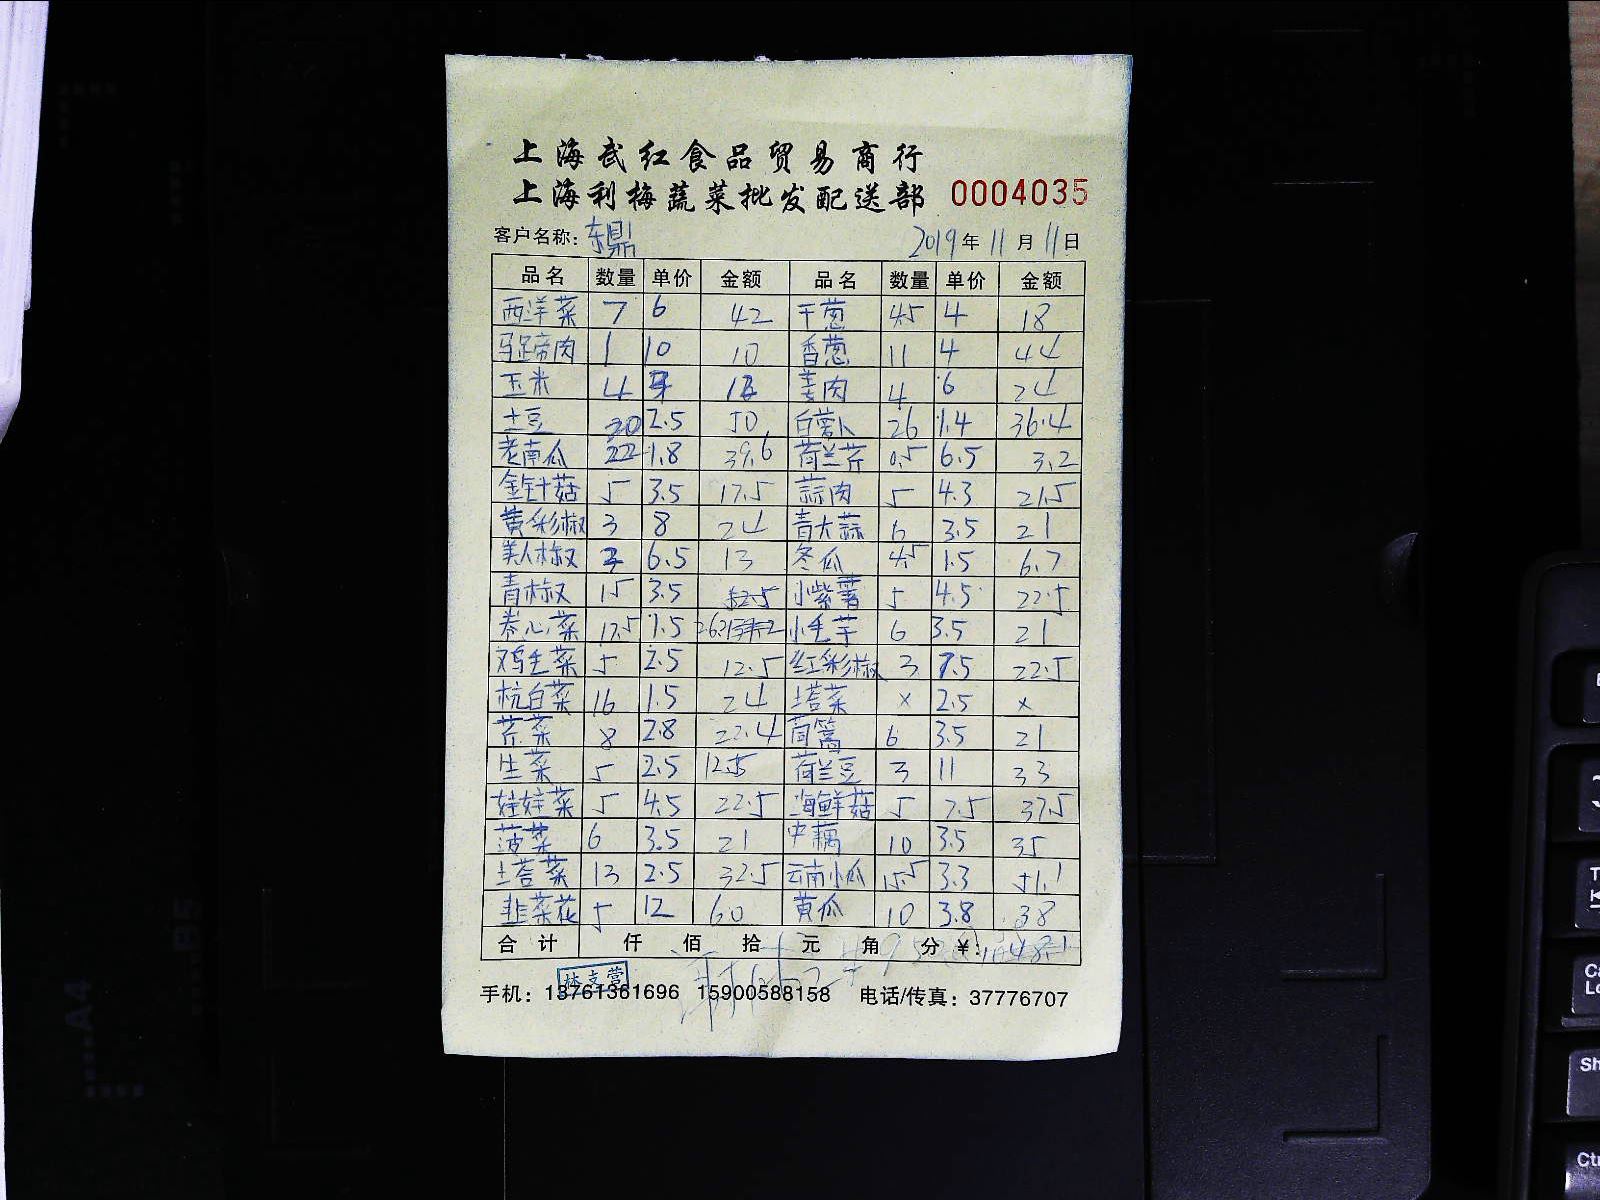 上海武红食品贸易商行
上海利梅蔬菜批发配送部 0004035
客户名称: 东鼎 2019年11月11日
品名 数量 单价 金额 品名 数量 单价 金额
西洋菜 7 6 42 干葱 4.5 4 18
马蹄肉 1 10 10 香葱 11 4 44
玉米 4 姜肉 4 6 24
土豆 20 2.5 50 白萝卜 26 1.4 36.4
老南瓜 22 1.8 39.6 荷兰芹 0.5 6.5 3.2
金针菇 5 3.5 17.5 蒜肉 5 4.3 21.5
黄彩椒 3 8 24 青大蒜 6 3.5 21
美人椒 2 6.5 13 冬瓜 4.5 1.5 6.7
青椒 15 3.5 52.5 小紫薯 5 4.5 22.5
卷心菜 17.5 1.5 小毛芋 6 3.5 21
鸡毛菜 5 2.5 12.5 红彩椒 3 7.5 22.5
杭白菜 16 1.5 24 塔菜 x 2.5 x
芹菜 8 2.8 22.4 茼篙 6 3.5 21
生菜 5 2.5 12.5 荷兰豆 3 11 33
娃娃菜 5 4.5 22.5 海鲜菇 5 7.5 37.5
菠菜 6 3.5 21 中藕 10 3.5 35
塔菜 13 2.5 32.5 云南小瓜 15.5 3.3 51.1
韭菜花 5 12 60 黄瓜 10 3.8 38
合计 仟 佰 拾 元 角 分 ¥:
林支营
手机: 13761361696 15900588158 电话/传真: 37776707
A4
B5